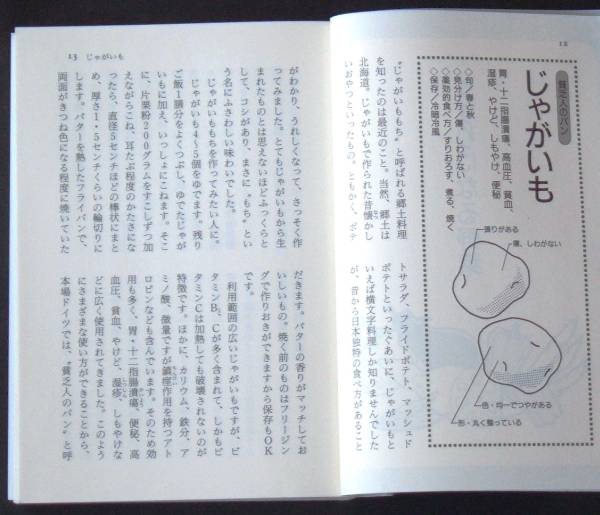 12
貧乏人のパン
じゃがいも
胃・十二指腸潰瘍、高血圧、貧血、
湿疹、やけど、しもやけ、便秘
◇旬／春と秋
◇見分け方／傷、しわがない
◇薬効的食べ方／すりおろす、煮る、焼く
◇保存／冷暗冷風
張りがある
傷、しわがない
色・均一でつやがある
形・丸く整っている
〝じゃがいももち〟と呼ばれる郷土料理
を知ったのは最近のこと。当然、郷土は
北海道。じゃがいもで作られた昔懐かし
いおやつといったもの。ともかく、ポテ
トサラダ、フライドポテト、マッシュド
ポテトといったぐあいに、じゃがいもと
いえば横文字料理しか知りませんでした
が、昔から日本独特の食べ方があること
13 じゃがいも
がわかり、うれしくなって、さっそく作
ってみました。とてもじゃがいもから生
まれたものとは思えないほどふっくらと
して、コシがあり、まさに〝もち〟とい
う名にふさわしい味わいでした。
じゃがいももちを作ってみたい人に。
じゃがいも4～5個をゆでます。残り
ご飯1膳分をよくつぶし、ゆでたじゃが
いもに加え、いっしょにこねます。そこ
に、片栗粉200グラムをすこしずつ加
えながらこね、耳たぶ程のかたさにな
ったら、直径5センチほどの棒状にまと
め、厚さ1・5センチくらいの輪切りに
します。バターを熱したフライパンで、
両面がきつね色になる程度に焼いていた
だきます。バターの香りがマッチしてお
いしいもの。焼く前のものはフリージン
グで作りおきができますから保存もOK
です。
利用範囲の広いじゃがいもですが、ビ
タミンB、Cが多く含まれて、しかもビ
タミンCは加熱しても破壊されないのが
特徴です。ほかに、カリウム、鉄分、ア
ミノ酸、微量ですが鎮痙作用を持つアト
ロピンなども含んでいます。そのため効
用も多く、胃・十二指腸潰瘍、便秘、高
血圧、貧血、やけど、湿疹、しもやけな
どに広く使用されてきました。このよう
にさまざまな使い方ができることから、
本場ドイツでは、〝貧乏人のパン〟と呼